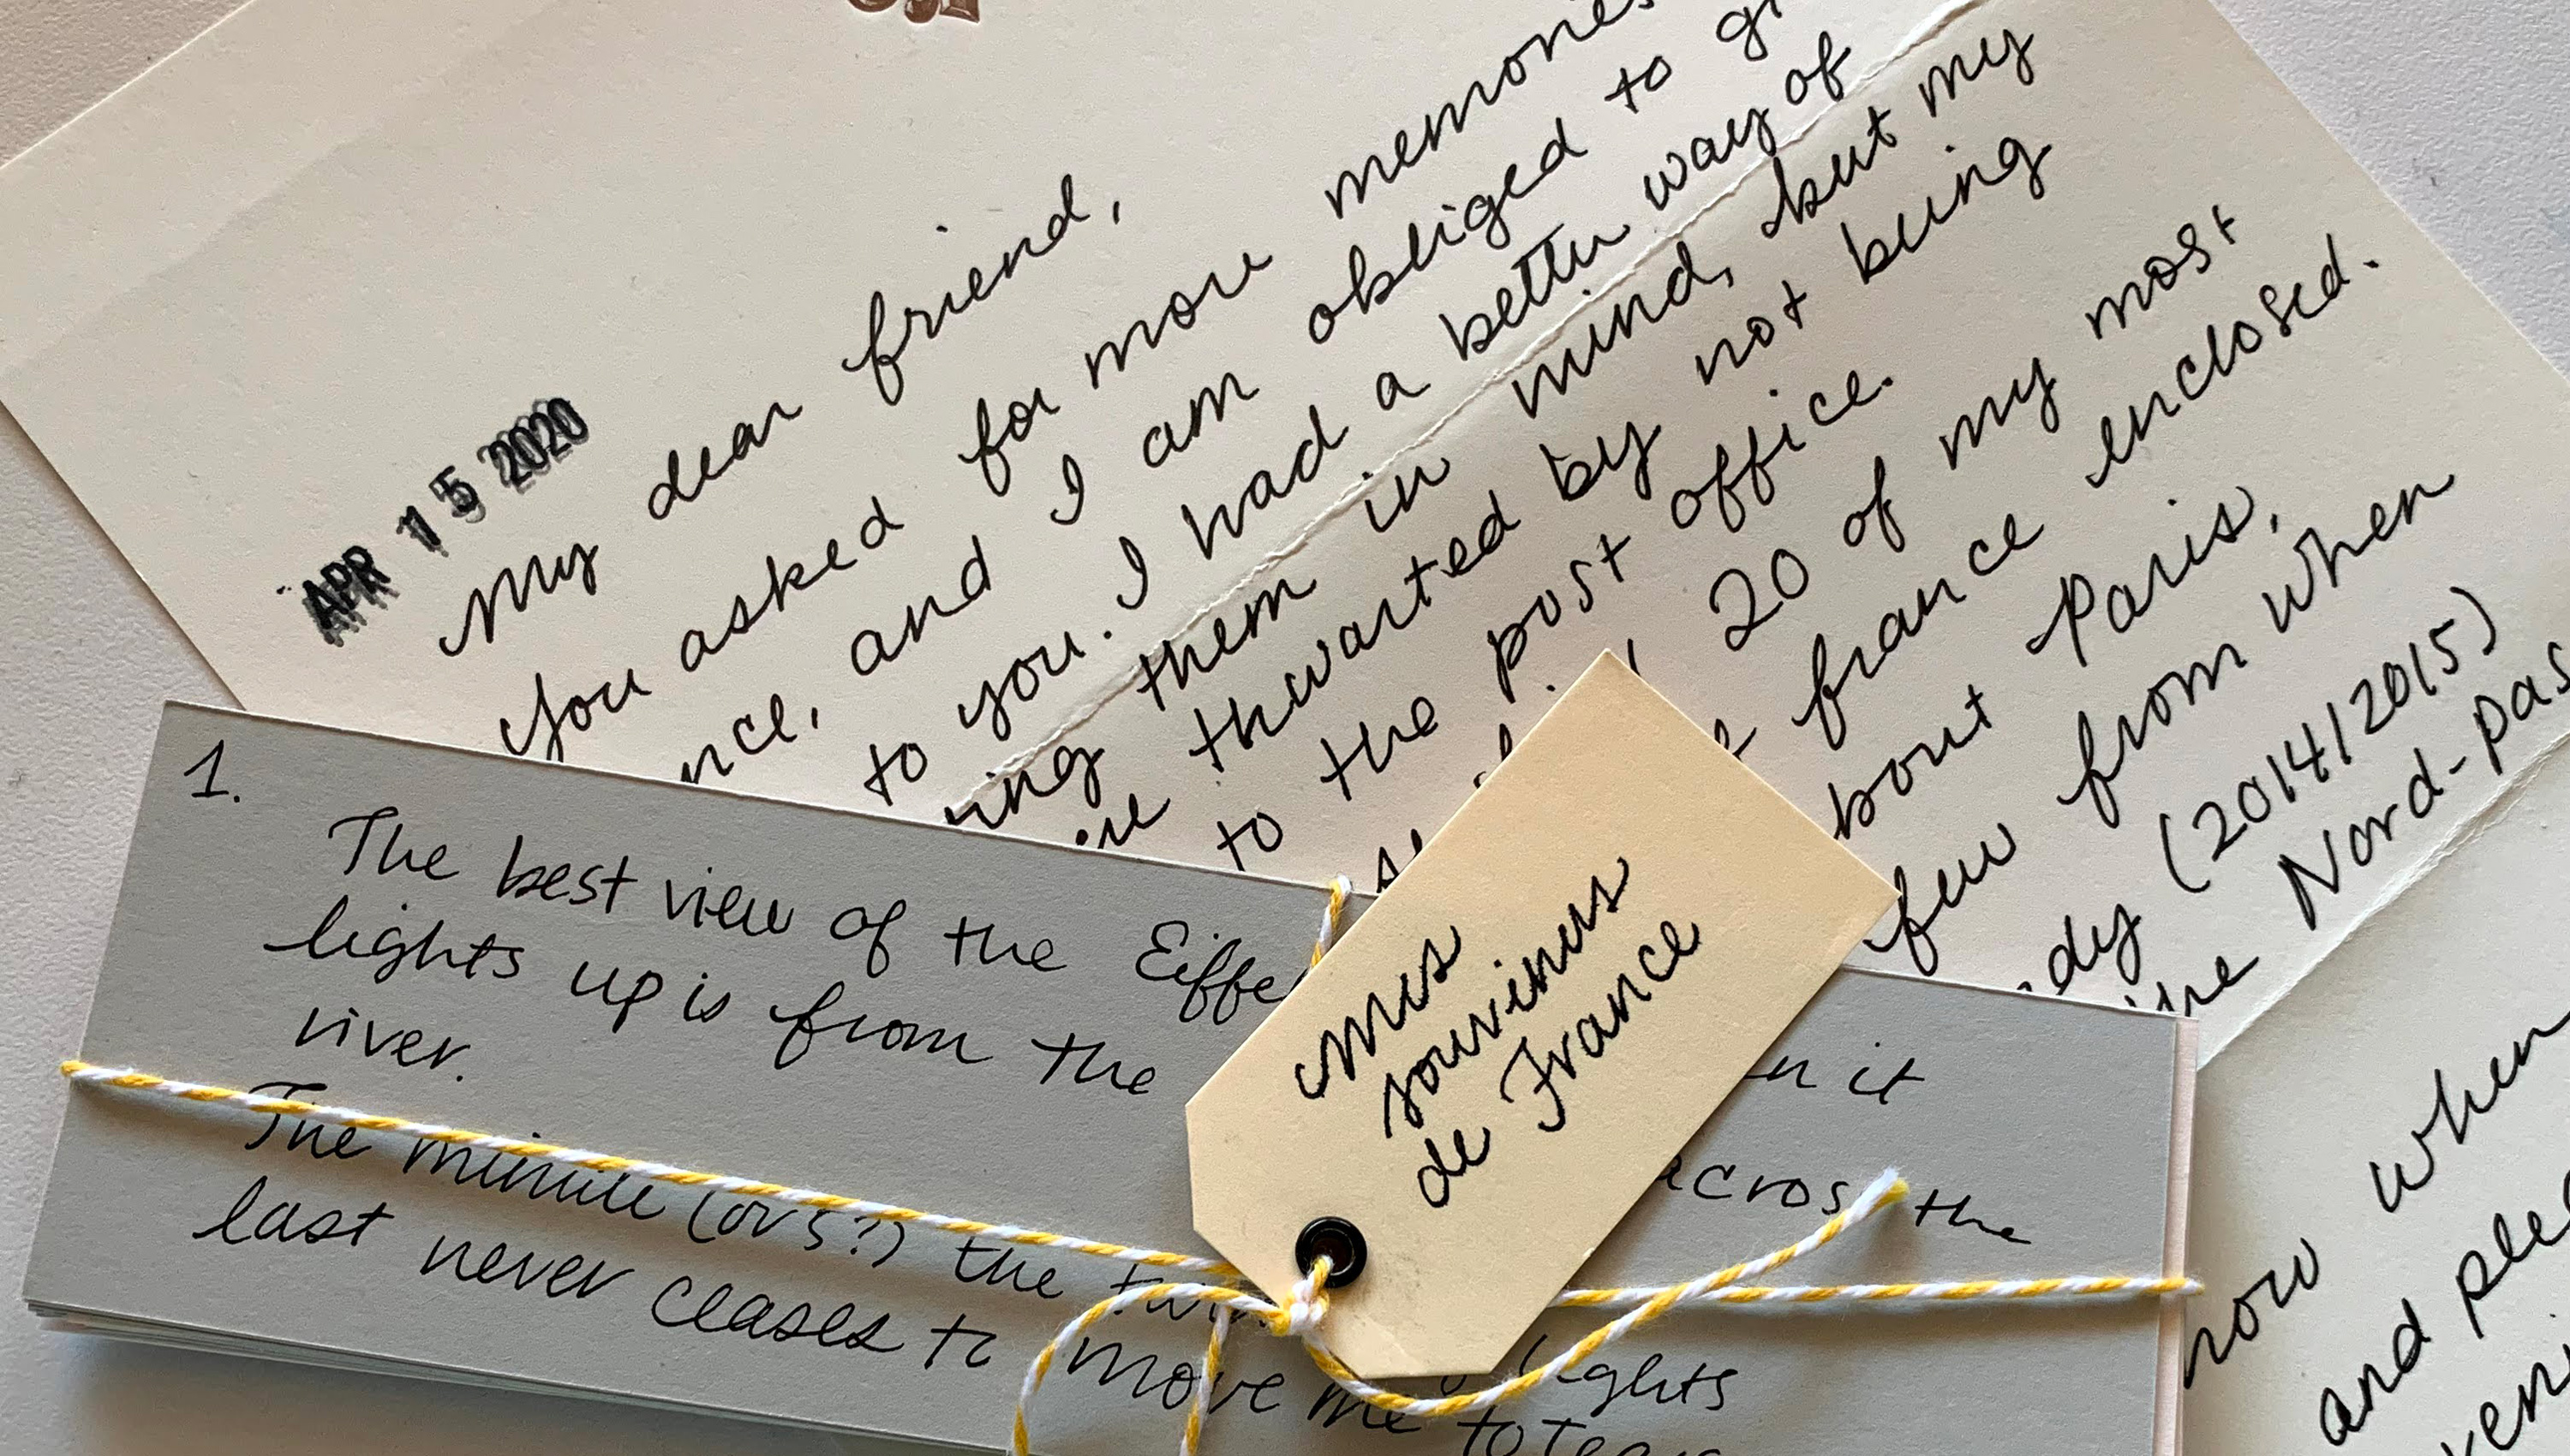 APR 15 2020
My dear friend,
You asked for more memories
and I am obliged to
to you. I had a better way of
them in mind, but my
thwarted by not being
to the post office.
20 of my most
france enclosed.
Paris,
few from when
(2014/2015)
the Nord-pas
when
now
and
1.
The best view of the Eiffe n it
lights up is from the across the
river.
The minute (or 5?) the lights
last never ceases to move me to tears
mes
souvenirs
de France